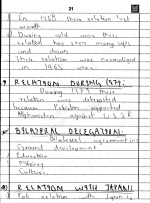 21
In 1958 their relation not
worth
During cold war their
relation has seen many ups
and down
Their relation was normalized
in 1965 war.
RELATION DURING 1979:
During 1979 their
relation was detoriated
because Pakistan supported
Afghanistan against USSR
BILATERAL DELEGATION:
Bilateral agreement in
Ground development
Education
Military
Culture.
RELATION WITH JAPAN:
Pak relation with Japan is